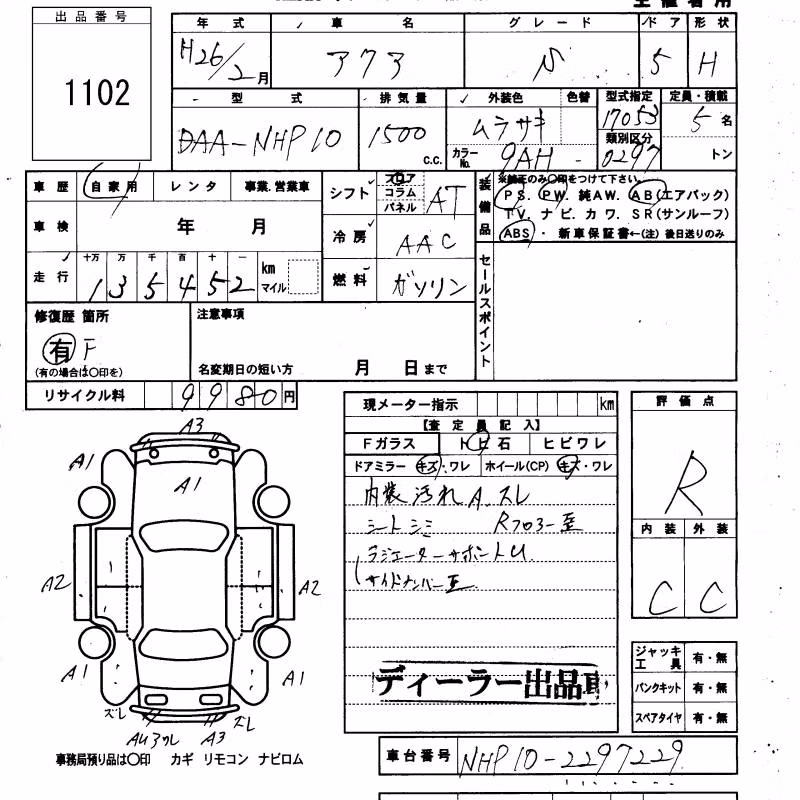 出品番号
1102
年式 車名 グレード ドア 形状
H26/2月 アクア S 5 H
型式 排気量 外装色 色替 型式指定 定員・積載
DAA-NHP10 1500 c.c. ムラサキ 17053 5名
カラーNo. 9AH - 類別区分 0297 トン
車歴 自家用 レンタ 事業.営業車
シフト フロア コラム パネル AT
車検 年 月
冷房 AAC
走行 十万 万 千 百 十 一 km マイル
135452
燃料 ガソリン
装備品 ※純正のみ○印をつけて下さい。
PS. PW. 純AW. AB(エアバック)
TV. ナビ. カワ. SR(サンルーフ)
ABS ・ 新車保証書←(注)後日送りのみ
セールスポイント
修復歴 箇所
有 F
(有の場合は○印を)
注意事項
名変期日の短い方 月 日まで
リサイクル料 9980円
現メーター指示 km
【査定員記入】
Fガラス トビ石 ヒビワレ
ドアミラー キズ・ワレ ホイール(CP) キズ・ワレ
内装汚れA.スレ
シートシミ Rフロアー歪
ラジエーターサポートU
サイドメンバー歪
ディーラー出品車
評価点
R
内装 外装
C C
ジャッキ工具 有・無
パンクキット 有・無
スペアタイヤ 有・無
A3
A1
A1
A2
A2
A1
A1
ズレ
ズレ
A3
事務局預り品は○印 カギ リモコン ナビロム
車台番号 NHP10-2297229